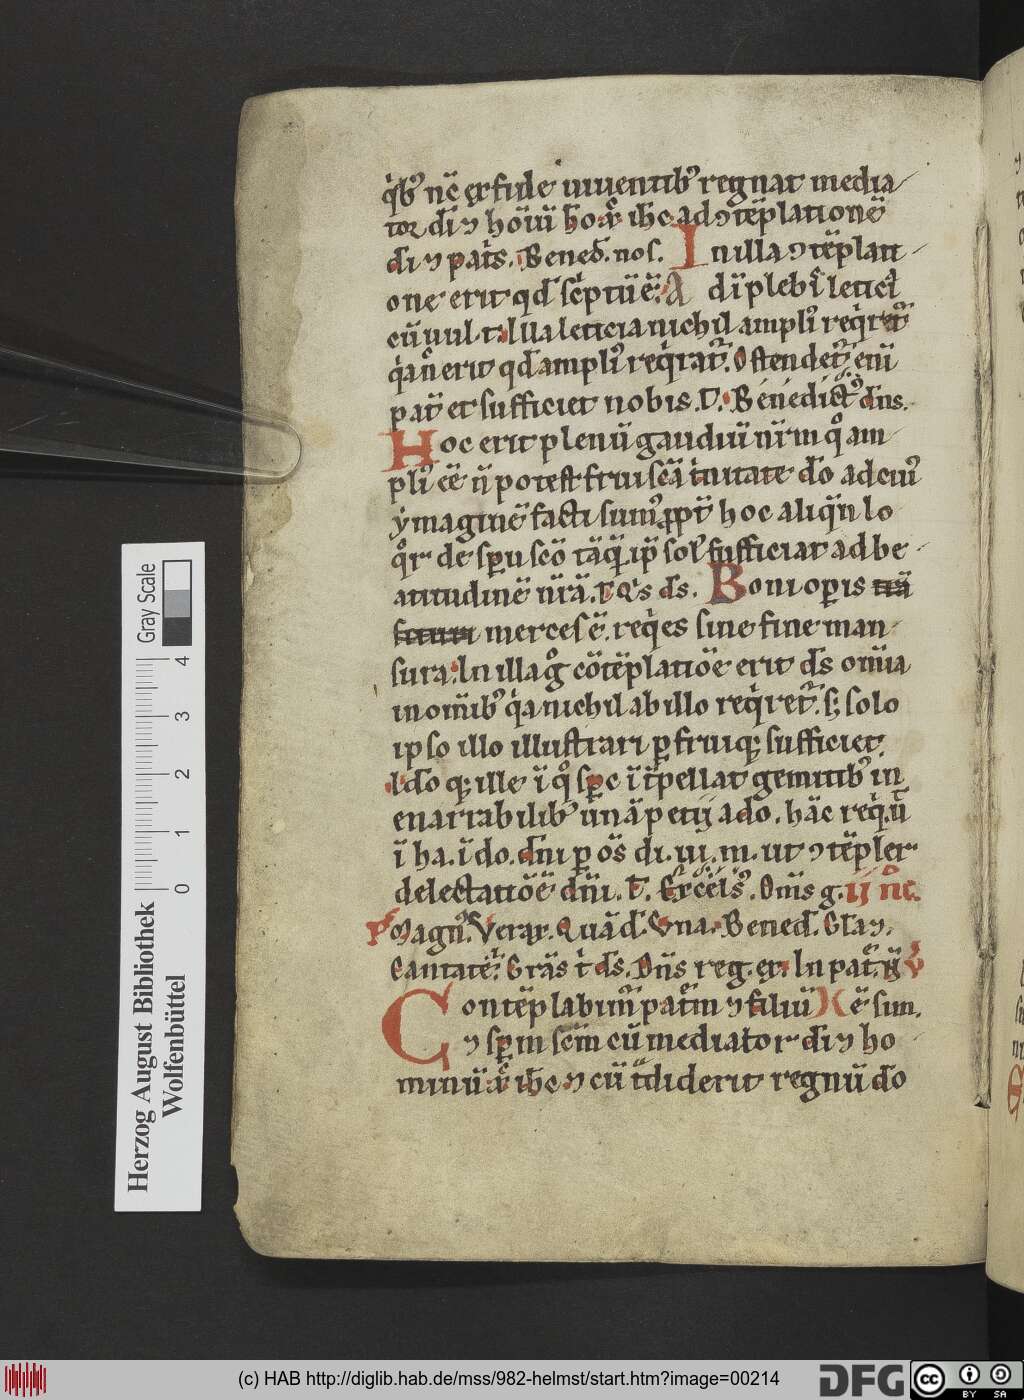 qib᷒ nc̄ ex fide uiuentib᷒ regnat media
tor di ⁊ hoīuī ho xp̄c ih̄c ad ꝯtēplationē
di ⁊ patis. Bened. nos. In illa ꝯtēplati
one erit qd sc̄ptū ē. A dīplebī leticia
cū uul. t. Illa leticia nichil ampli᷒ reqͥret᷒
qͥa n̄ erit qd ampli᷒ reqͥrat᷒. Ostendet᷒ enī
pat̄ et sufficiet nobis. T. Benedict᷒ dn̄s.
Hoc erit plenū gaudiū nr̄m qͦ am
pli᷒ ēē n̄ potest frui sc̄a t̄nitate do ad cui᷒
ymaginē facti sum᷒ ꝓpt̄ hoc aliqn̄ lo
qͦr de sp̄u sc̄o tāqͣ ip̄ sol᷒ sufficiat ad be
atitudinē nr̄ā. T Qͥs ds. Boni opis
merces ē. reqͥes sine fine man
sura. In illa gͦ cōtēplatiōe erit ds om̄ia
in om̄ib᷒ qͥa nichil ab illo reqͥret᷒. s; solo
ipso illo illustrari ꝑfruiq; sufficiet.
Ido q; ille ī qͦ spc īt̄pellat gemitib᷒ in
enarrabilib᷒ unā petij a do. hāc reqͥrā
ī ha. ī do. dn̄i ꝑ os̄ di. ui. m. ut ꝯtēpler
delectatiōē dn̄i. T. Excels᷒. Dn̄s g. ij n̄c.
Magn᷒. Verax. Quā d. Vna. Bened. Gl̄a ⁊.
Cantate. Grās t ds. Dn̄s reg. ex. In pat̄.
Contēplabim᷒ patr̄m ⁊ filiū X ē sum.
⁊ sp̄m sc̄m cū mediator di ⁊ ho
minū xp̄c ih̄c ⁊ cū t̄diderit regnū do
Gray Scale
4 3 2 1 0
Herzog August Bibliothek
Wolfenbüttel
(c) HAB http://diglib.hab.de/mss/982-helmst/start.htm?image=00214
DFG
cc BY SA